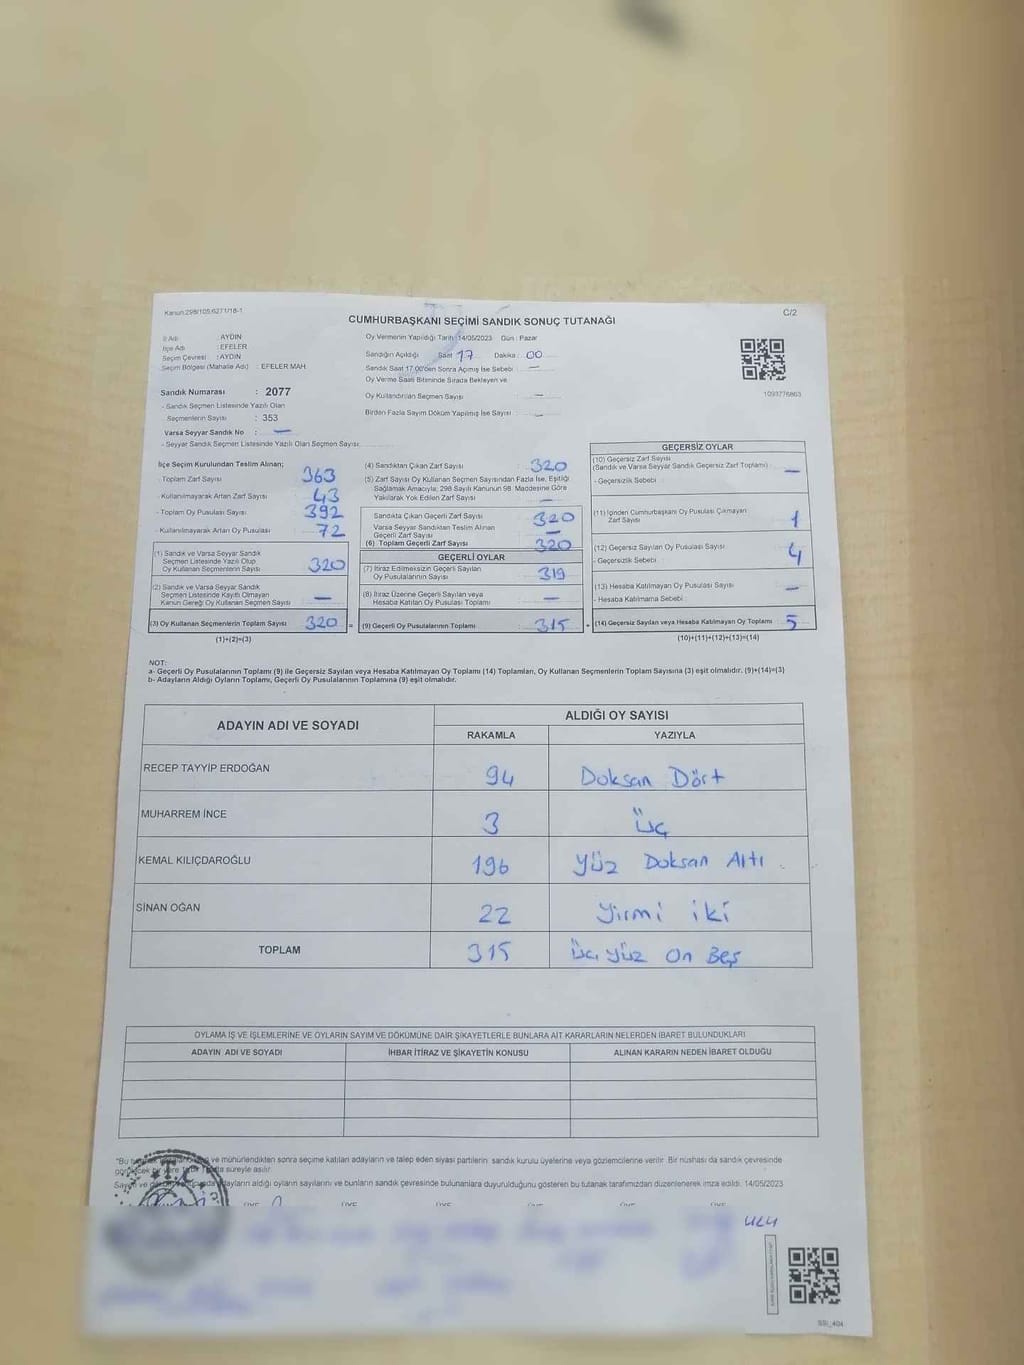 Kanun:298/105;6271/18-1
C/2
CUMHURBAŞKANI SEÇİMİ SANDIK SONUÇ TUTANAĞI
İl Adı : AYDIN
İlçe Adı : EFELER
Seçim Çevresi : AYDIN
Seçim Bölgesi (Mahalle Adı) : EFELER MAH.
Oy Vermenin Yapıldığı Tarih :14/05/2023 Gün : Pazar
Sandığın Açıldığı Saat 17 Dakika : 00
Sandık Saat 17.00'den Sonra Açılmış İse Sebebi : —
Oy Verme Saati Bitiminde Sırada Bekleyen ve
Oy Kullandırılan Seçmen Sayısı : —
Birden Fazla Sayım Döküm Yapılmış İse Sayısı : —
1093776863
Sandık Numarası : 2077
- Sandık Seçmen Listesinde Yazılı Olan
Seçmenlerin Sayısı : 353
Varsa Seyyar Sandık No : —
- Seyyar Sandık Seçmen Listesinde Yazılı Olan Seçmen Sayısı:
İlçe Seçim Kurulundan Teslim Alınan;
- Toplam Zarf Sayısı 363
- Kullanılmayarak Artan Zarf Sayısı 43
- Toplam Oy Pusulası Sayısı 392
- Kullanılmayarak Artan Oy Pusulası 72
(1) Sandık ve Varsa Seyyar Sandık
Seçmen Listesinde Yazılı Olup
Oy Kullanan Seçmenlerin Sayısı 320
(2) Sandık ve Varsa Seyyar Sandık
Seçmen Listesinde Kayıtlı Olmayan
Kanun Gereği Oy Kullanan Seçmen Sayısı —
(3) Oy Kullanan Seçmenlerin Toplam Sayısı 320
(1)+(2)=(3)
(4) Sandıktan Çıkan Zarf Sayısı : 320
(5) Zarf Sayısı Oy Kullanan Seçmen Sayısından Fazla İse, Eşitliği
Sağlamak Amacıyla; 298 Sayılı Kanunun 98. Maddesine Göre
Yakılarak Yok Edilen Zarf Sayısı —
Sandıkta Çıkan Geçerli Zarf Sayısı : 320
Varsa Seyyar Sandıktan Teslim Alınan
Geçerli Zarf Sayısı —
(6) Toplam Geçerli Zarf Sayısı : 320
GEÇERLİ OYLAR
(7) İtiraz Edilmeksizin Geçerli Sayılan
Oy Pusulalarının Sayısı 319
(8) İtiraz Üzerine Geçerli Sayılan veya
Hesaba Katılan Oy Pusulası Toplamı —
= (9) Geçerli Oy Pusulalarının Toplamı : 315
GEÇERSİZ OYLAR
(10) Geçersiz Zarf Sayısı
(Sandık ve Varsa Seyyar Sandık Geçersiz Zarf Toplamı) —
- Geçersizlik Sebebi :
(11) İçinden Cumhurbaşkanı Oy Pusulası Çıkmayan
Zarf Sayısı 1
(12) Geçersiz Sayılan Oy Pusulası Sayısı : 4
- Geçersizlik Sebebi :
(13) Hesaba Katılmayan Oy Pusulası Sayısı : —
- Hesaba Katılmama Sebebi :
+ (14) Geçersiz Sayılan veya Hesaba Katılmayan Oy Toplamı : 5
(10)+(11)+(12)+(13)=(14)
NOT:
a- Geçerli Oy Pusulalarının Toplamı (9) ile Geçersiz Sayılan veya Hesaba Katılmayan Oy Toplamı (14) Toplamları, Oy Kullanan Seçmenlerin Toplam Sayısına (3) eşit olmalıdır. (9)+(14)=(3)
b- Adayların Aldığı Oyların Toplamı, Geçerli Oy Pusulalarının Toplamına (9) eşit olmalıdır.
ADAYIN ADI VE SOYADI ALDIĞI OY SAYISI
RAKAMLA YAZIYLA
RECEP TAYYİP ERDOĞAN 94 Doksan Dört
MUHARREM İNCE 3 Üç
KEMAL KILIÇDAROĞLU 196 Yüz Doksan Altı
SİNAN OĞAN 22 Yirmi iki
TOPLAM 315 Üç yüz On Beş
OYLAMA İŞ VE İŞLEMLERİNE VE OYLARIN SAYIM VE DÖKÜMÜNE DAİR ŞİKAYETLERLE BUNLARA AİT KARARLARIN NELERDEN İBARET BULUNDUKLARI
ADAYIN ADI VE SOYADI İHBAR İTİRAZ VE ŞİKAYETİN KONUSU ALINAN KARARIN NEDEN İBARET OLDUĞU
"Bu ve mühürlendikten sonra seçime katılan adayların ve talep eden siyasi partilerin sandık kurulu üyelerine veya gözlemcilerine verilir. Bir nüshası da sandık çevresinde
süreyle asılır.
adayların aldığı oyların sayılarını ve bunların sandık çevresinde bulunanlara duyurulduğunu gösteren bu tutanak tarafımızdan düzenlenerek imza edildi. 14/05/2023
T.C.
ÜYE ÜYE ÜYE ÜYE ÜYE ÜYE
SSI_404